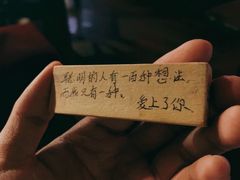 聪明的人有一百种想法,
而愚只有一种。
爱上了你